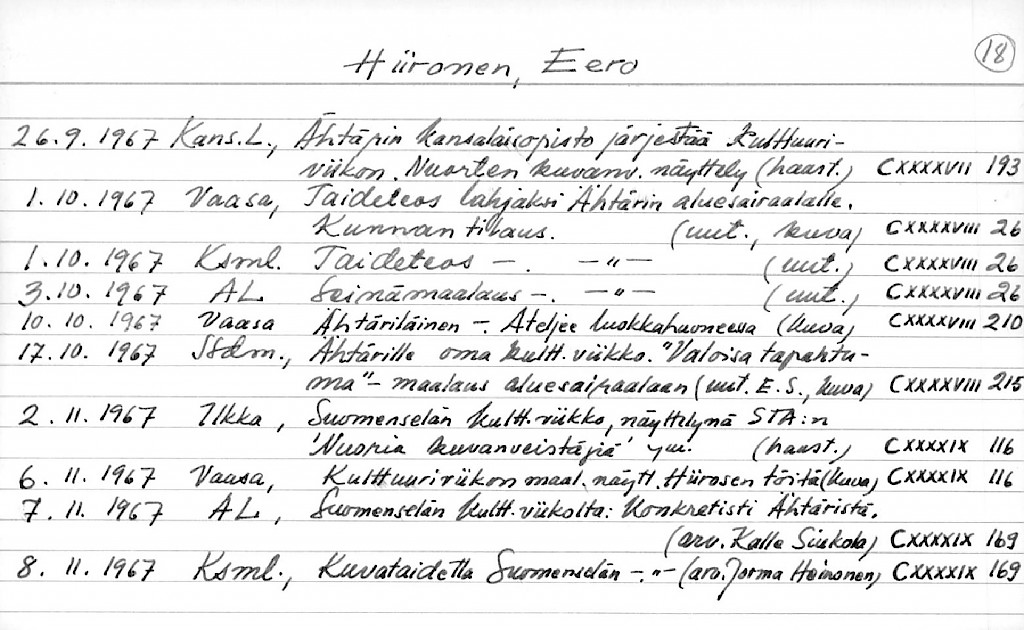 18
Hiironen, Eero
26.9. 1967 Kans.L., Ähtärin kansalaisopisto järjestää kulttuuri-
viikon. Nuorten kuvanv. näyttely (haast.) CXXXXVII 193
1.10. 1967 Vaasa, Taideteos lahjaksi Ähtärin aluesairaalalle.
Kunnan tilaus. (uut., kuva) CXXXXVIII 26
1.10. 1967 Ksml. Taideteos —. —"— (uut.) CXXXXVIII 26
3.10. 1967 AL Seinämaalaus —. —"— (uut.) CXXXXVIII 26
10.10. 1967 Vaasa Ähtäriläinen —. Ateljee luokkahuoneessa (kuva) CXXXXVIII 210
17.10. 1967 SSdm., Ähtärille oma kultt.viikko. "Valoisa tapahtu-
ma"- maalaus aluesairaalaan (uut. E.S., kuva) CXXXXVIII 215
2.11. 1967 Ilkka, Suomenselän kultt.viikko, näyttelynä STA:n
'Nuoria kuvanveistäjiä' ym. (haast.) CXXXXIX 116
6.11. 1967 Vaasa, Kulttuuriviikon maal.näytt. Hiirosen töitä (kuva) CXXXXIX 116
7.11. 1967 AL, Suomenselän kultt.viikolta: Konkretisti Ähtäristä.
(arv. Kalle Siukola) CXXXXIX 169
8.11. 1967 Ksml., Kuvataidetta Suomenselän —. "— (arv. Jorma Heinonen) CXXXXIX 169